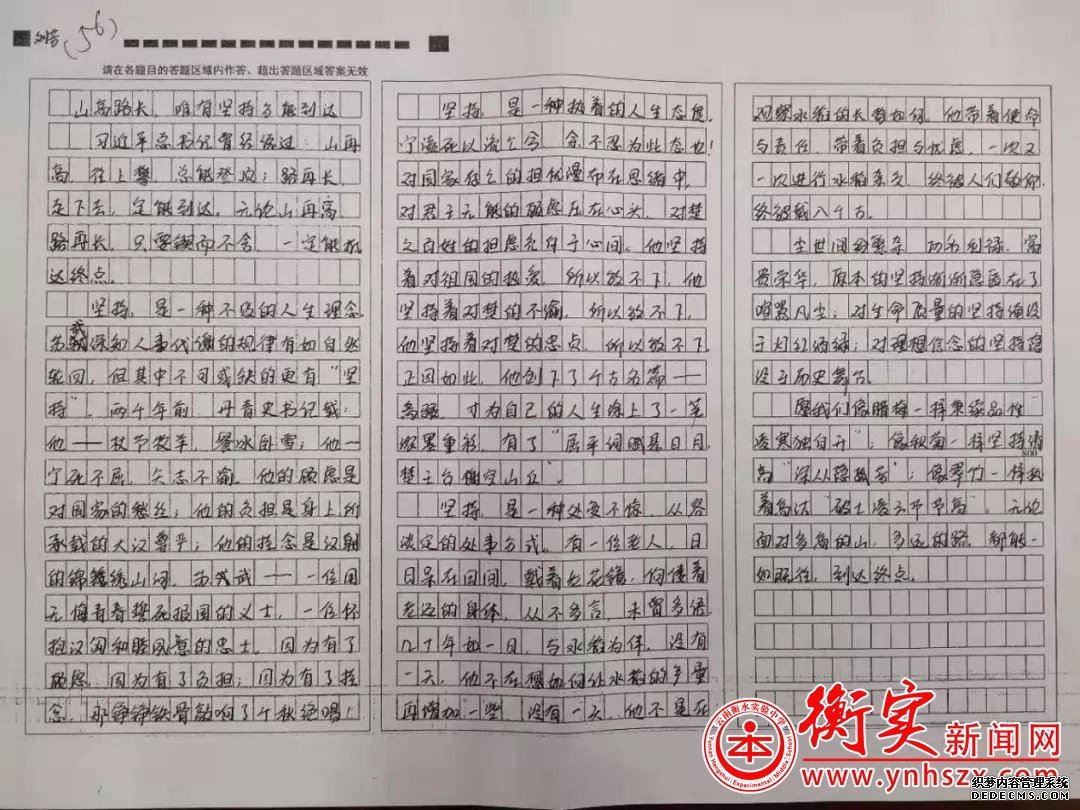 刘芳 (56)
请在各题目的答题区域内作答、超出答题区域答案无效
山高路长，唯有坚持方能到达
习近平总书记曾经说过：山再
高，往上攀，总能登顶；路再长，
走下去，定能到达。无论山再高，
路再长，只要锲而不舍，一定能抵
达终点。
坚持，是一种不败的人生理念。
苏武深知人事代谢的规律有如自然
轮回，但其中不可或缺的更有“坚
持”。两千年前，丹青史书记载：
他——杖节牧羊，餐冰卧雪；他——
宁死不屈，矢志不渝。他的顾虑是
对国家的愁丝；他的负担是身上所
承载的大汉尊严；他的挂念是汉朝
的锦绣山河。苏武——一位用
无悔青春誓死报国的义士，一位怀
抱汉匈和睦夙愿的忠士。因为有了
顾虑，因为有了负担；因为有了挂
念，那铮铮铁骨敲响了千秋绝唱！
坚持，是一种执着的人生态度。
宁溘死以流亡兮，余不忍为此态也！
对国家存亡的担忧漫布在思绪中，
对君主无能的顾虑压在心头，对楚
之百姓的担虑充斥于心间。他坚持
着对祖国的热爱，所以放不下，他
坚持着对楚的不渝，所以放不下，
他坚持着对楚的忠点，所以放不下。
正因如此，他创下了千古名篇——
离骚，才为自己的人生涂上了一笔
浓墨重彩，有了“屈平词赋悬日月，
楚王台榭空山丘”。
坚持，是一种处变不惊，从容
淡定的处事方式。有一位老人，日
日呆在田间，戴着老花镜，佝偻着
老迈的身体，从不多言，未曾多语
几十年如一日，与水稻为伴，没有
一天，他不在想如何让水稻的产量
再增加一些，没有一天，他不是在
观察水稻的长势如何。他带着使命
与责任，带着负担与忧虑，一次又
一次进行水稻杂交，终被人们敬仰，
终被载入千古。
尘世间的繁杂，功名利禄，富
贵荣华，原本的坚持渐渐隐匿在了
喧嚣凡尘；对生命质量的坚持淹没
于灯红酒绿；对理想信念的坚持隐
没于历史舞台。
愿我们像腊梅一样秉续品性
“凌寒独自开”；像秋菊一样坚持清
800
高“深从隐孤芳”；像翠竹一样执
着高洁“破土凌云节节高”。无论
面对多高的山，多远的路，都能一
如既往，到达终点。
云南衡水实验中学
Yunnan Hengshui Experimental Middle School
本
衡实新闻网
www.ynhszx.com
织梦内容管理系统
DEDECMS.COM